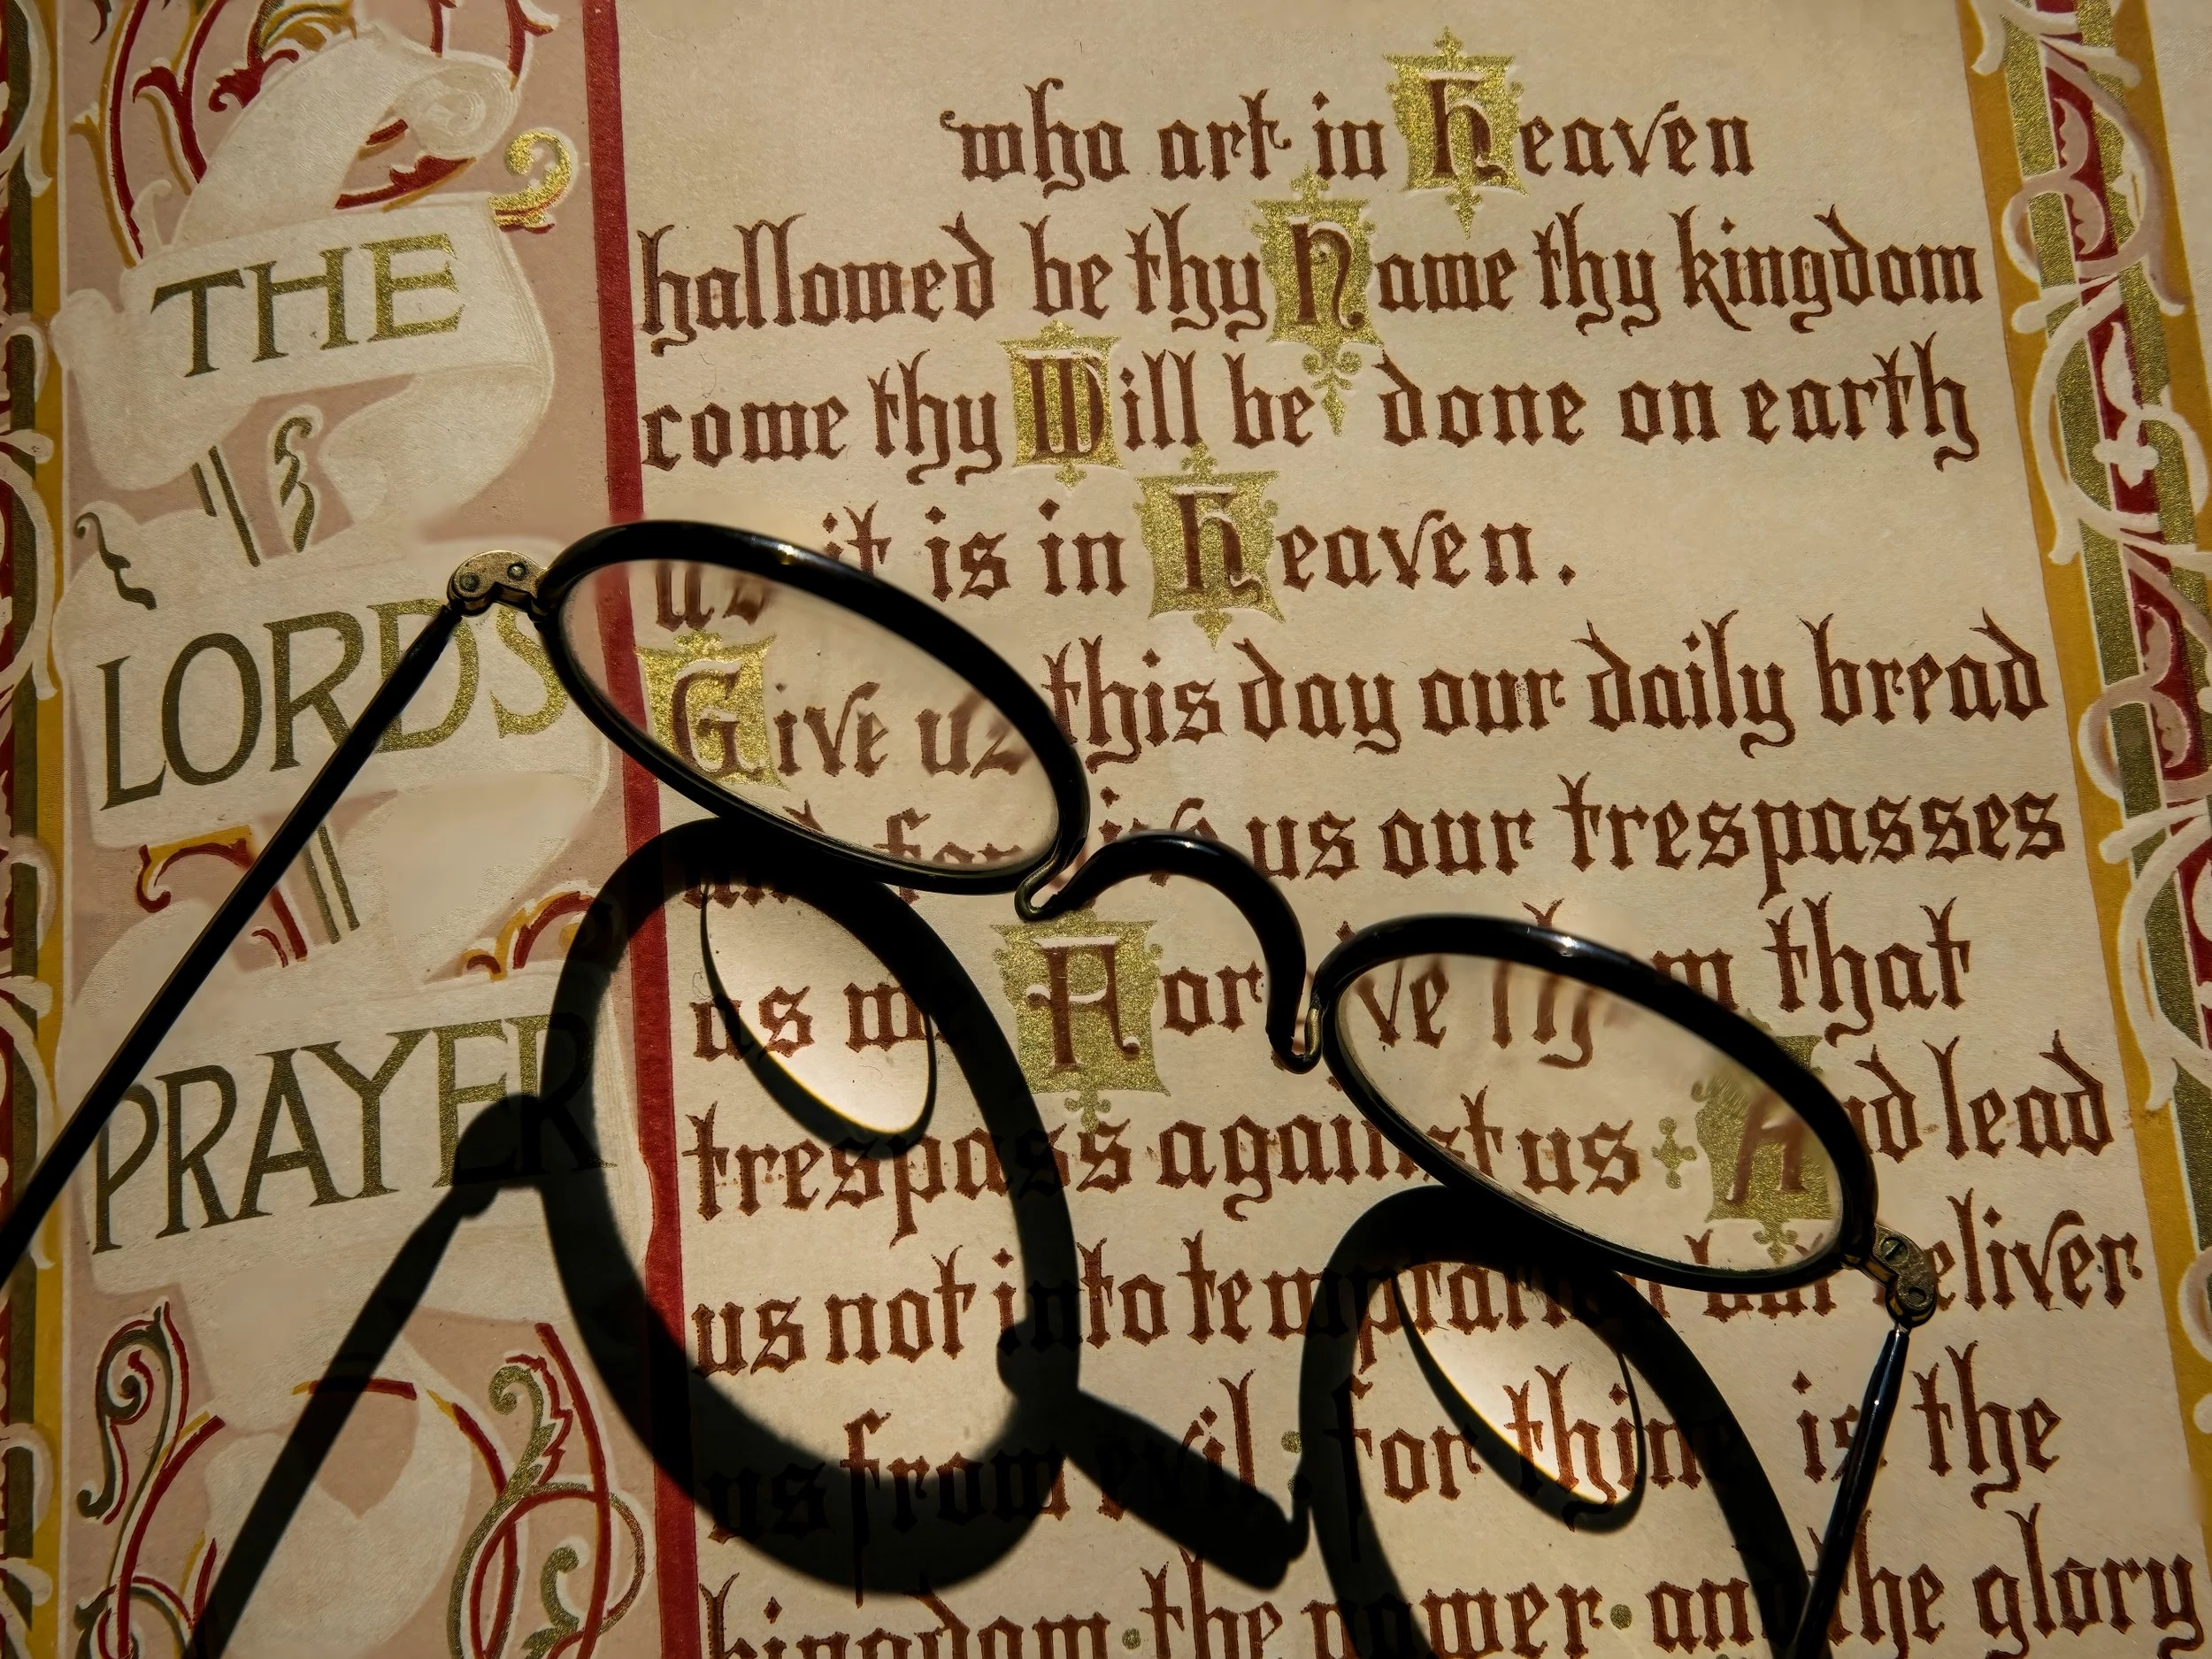 THE
LORDS
PRAYER
who art in Heaven
hallowed be thy Name thy kingdom
come thy Will be done on earth
as it is in Heaven.
Give us this day our daily bread
and forgive us our trespasses
as we Forgive them that
trespass against us And lead
us not into temptation but deliver
us from evil : for thine is the
kingdom · the power · and the glory